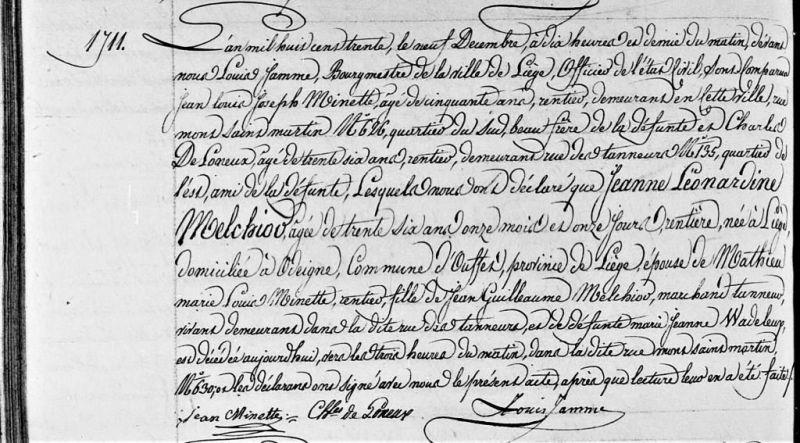 1711.
L'an mil huit cent trente, le neuf Decembre, à dix heures et demie du matin, devant
nous Louis Jamme, Bourgmestre de la ville de Liège, Officier de l'état Civil, sont comparus
Jean Louis Joseph Minette, agé de cinquante ans, rentier, demeurant en cette ville, rue
mont Saint martin N° 626, quartier du sud, beau frère de la défunte et Charles
De Loneux, agé de trente six ans, rentier, demeurant rue des tanneurs N° 135, quartier de
l'est, ami de la défunte, Lesquels nous ont déclaré que Jeanne Léonardine
Melchior, agée de trente six ans onze mois et onze jours, rentière, née à Liège,
domiciliée à Odeigne, Commune d'Ouffet, province de Liège, épouse de Mathieu
marie Louis Minette, rentier, fille de Jean Guilleaume Melchior, marchand tanneur,
vivant demeurant dans la dite rue des tanneurs, et de défunte marie Jeanne Wadeleux,
est décédée aujourd'hui, vers les trois heures du matin, dans la dite rue mont saint martin,
N° 630; et les déclarans ont signé avec nous le présent acte, après que lecture leur en a été faite.
Jean Minette Ch.les de Loneux Louis Jamme